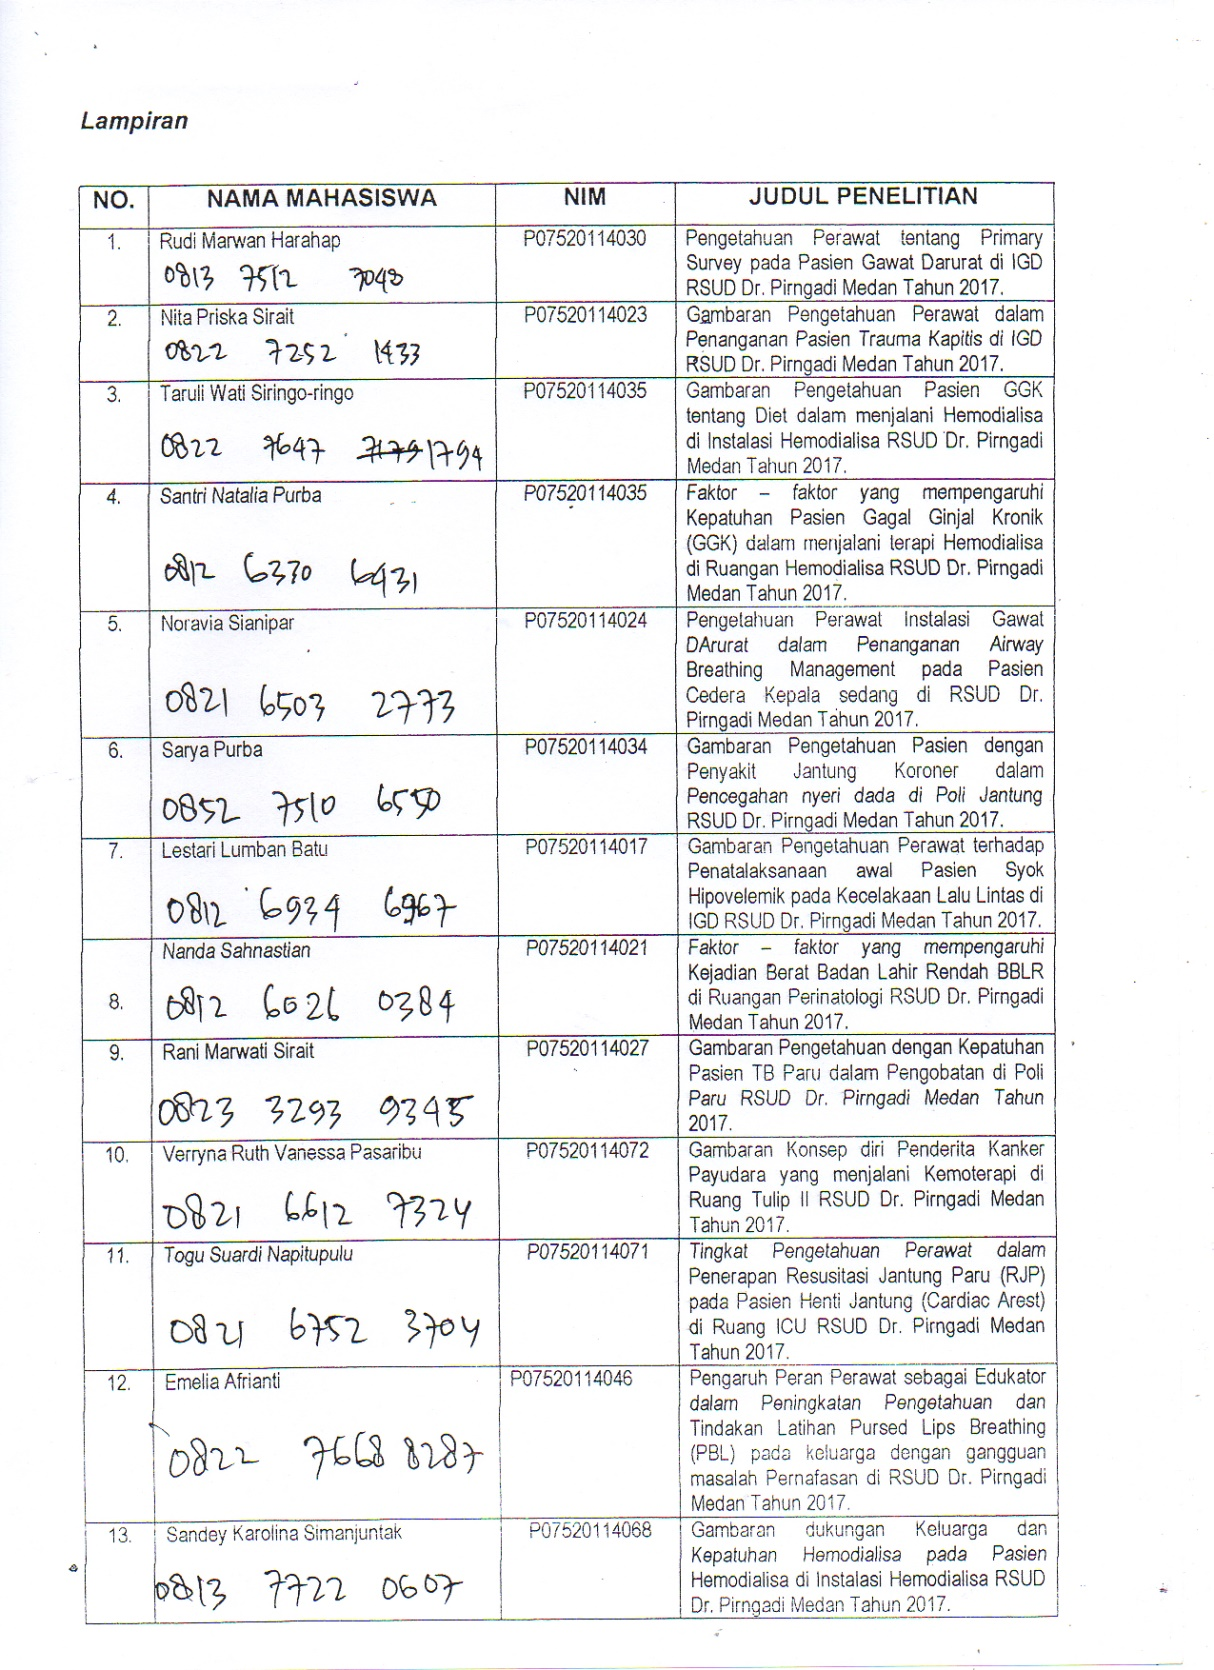 Lampiran
NO. NAMA MAHASISWA NIM JUDUL PENELITIAN
1. Rudi Marwan Harahap P07520114030 Pengetahuan Perawat tentang Primary
Survey pada Pasien Gawat Darurat di IGD
0813 7512 7048 RSUD Dr. Pirngadi Medan Tahun 2017.
2. Nita Priska Sirait P07520114023 Gambaran Pengetahuan Perawat dalam
0822 7252 1433 Penanganan Pasien Trauma Kapitis di IGD
RSUD Dr. Pirngadi Medan Tahun 2017.
3. Taruli Wati Siringo-ringo P07520114035 Gambaran Pengetahuan Pasien GGK
tentang Diet dalam menjalani Hemodialisa
0822 7647 1794 di Instalasi Hemodialisa RSUD Dr. Pirngadi
Medan Tahun 2017.
4. Santri Natalia Purba P07520114035 Faktor – faktor yang mempengaruhi
Kepatuhan Pasien Gagal Ginjal Kronik
(GGK) dalam menjalani terapi Hemodialisa
0812 6330 6431 di Ruangan Hemodialisa RSUD Dr. Pirngadi
Medan Tahun 2017.
5. Noravia Sianipar P07520114024 Pengetahuan Perawat Instalasi Gawat
DArurat dalam Penanganan Airway
Breathing Management pada Pasien
0821 6503 2773 Cedera Kepala sedang di RSUD Dr.
Pirngadi Medan Tahun 2017.
6. Sarya Purba P07520114034 Gambaran Pengetahuan Pasien dengan
Penyakit Jantung Koroner dalam
0852 7510 6550 Pencegahan nyeri dada di Poli Jantung
RSUD Dr. Pirngadi Medan Tahun 2017.
7. Lestari Lumban Batu P07520114017 Gambaran Pengetahuan Perawat terhadap
Penatalaksanaan awal Pasien Syok
0812 6934 6967 Hipovelemik pada Kecelakaan Lalu Lintas di
IGD RSUD Dr. Pirngadi Medan Tahun 2017.
Nanda Sahnastian P07520114021 Faktor – faktor yang mempengaruhi
Kejadian Berat Badan Lahir Rendah BBLR
8. 0812 6026 0384 di Ruangan Perinatologi RSUD Dr. Pirngadi
Medan Tahun 2017.
9. Rani Marwati Sirait P07520114027 Gambaran Pengetahuan dengan Kepatuhan
Pasien TB Paru dalam Pengobatan di Poli
0823 3293 9345 Paru RSUD Dr. Pirngadi Medan Tahun
2017.
10. Verryna Ruth Vanessa Pasaribu P07520114072 Gambaran Konsep diri Penderita Kanker
Payudara yang menjalani Kemoterapi di
0821 6612 7324 Ruang Tulip II RSUD Dr. Pirngadi Medan
Tahun 2017.
11. Togu Suardi Napitupulu P07520114071 Tingkat Pengetahuan Perawat dalam
Penerapan Resusitasi Jantung Paru (RJP)
pada Pasien Henti Jantung (Cardiac Arest)
0821 6752 3704 di Ruang ICU RSUD Dr. Pirngadi Medan
Tahun 2017.
12. Emelia Afrianti P07520114046 Pengaruh Peran Perawat sebagai Edukator
dalam Peningkatan Pengetahuan dan
Tindakan Latihan Pursed Lips Breathing
0822 7668 8287 (PBL) pada keluarga dengan gangguan
masalah Pernafasan di RSUD Dr. Pirngadi
Medan Tahun 2017.
13. Sandey Karolina Simanjuntak P07520114068 Gambaran dukungan Keluarga dan
Kepatuhan Hemodialisa pada Pasien
0813 7722 0607 Hemodialisa di Instalasi Hemodialisa RSUD
Dr. Pirngadi Medan Tahun 2017.